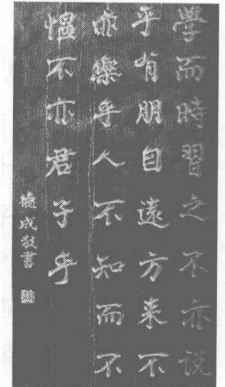 學而時習之不亦說
乎有朋自遠方来不
亦樂乎人不知而不
愠不亦君子乎
成敬書